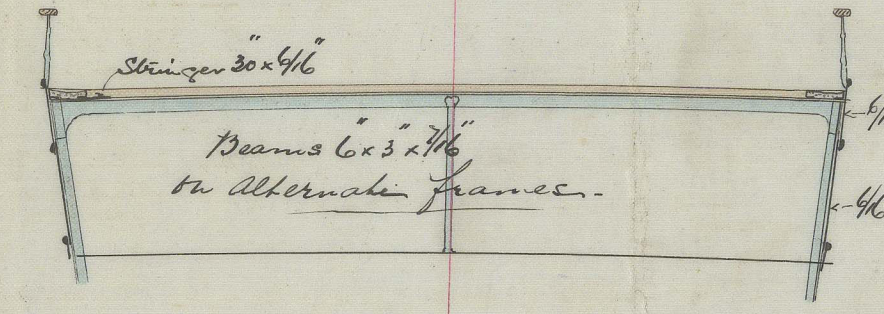 Stringer 30" x 6/16"
6/1
Beams 6" x 3" x 7/16"
on alternate frames.
6/16